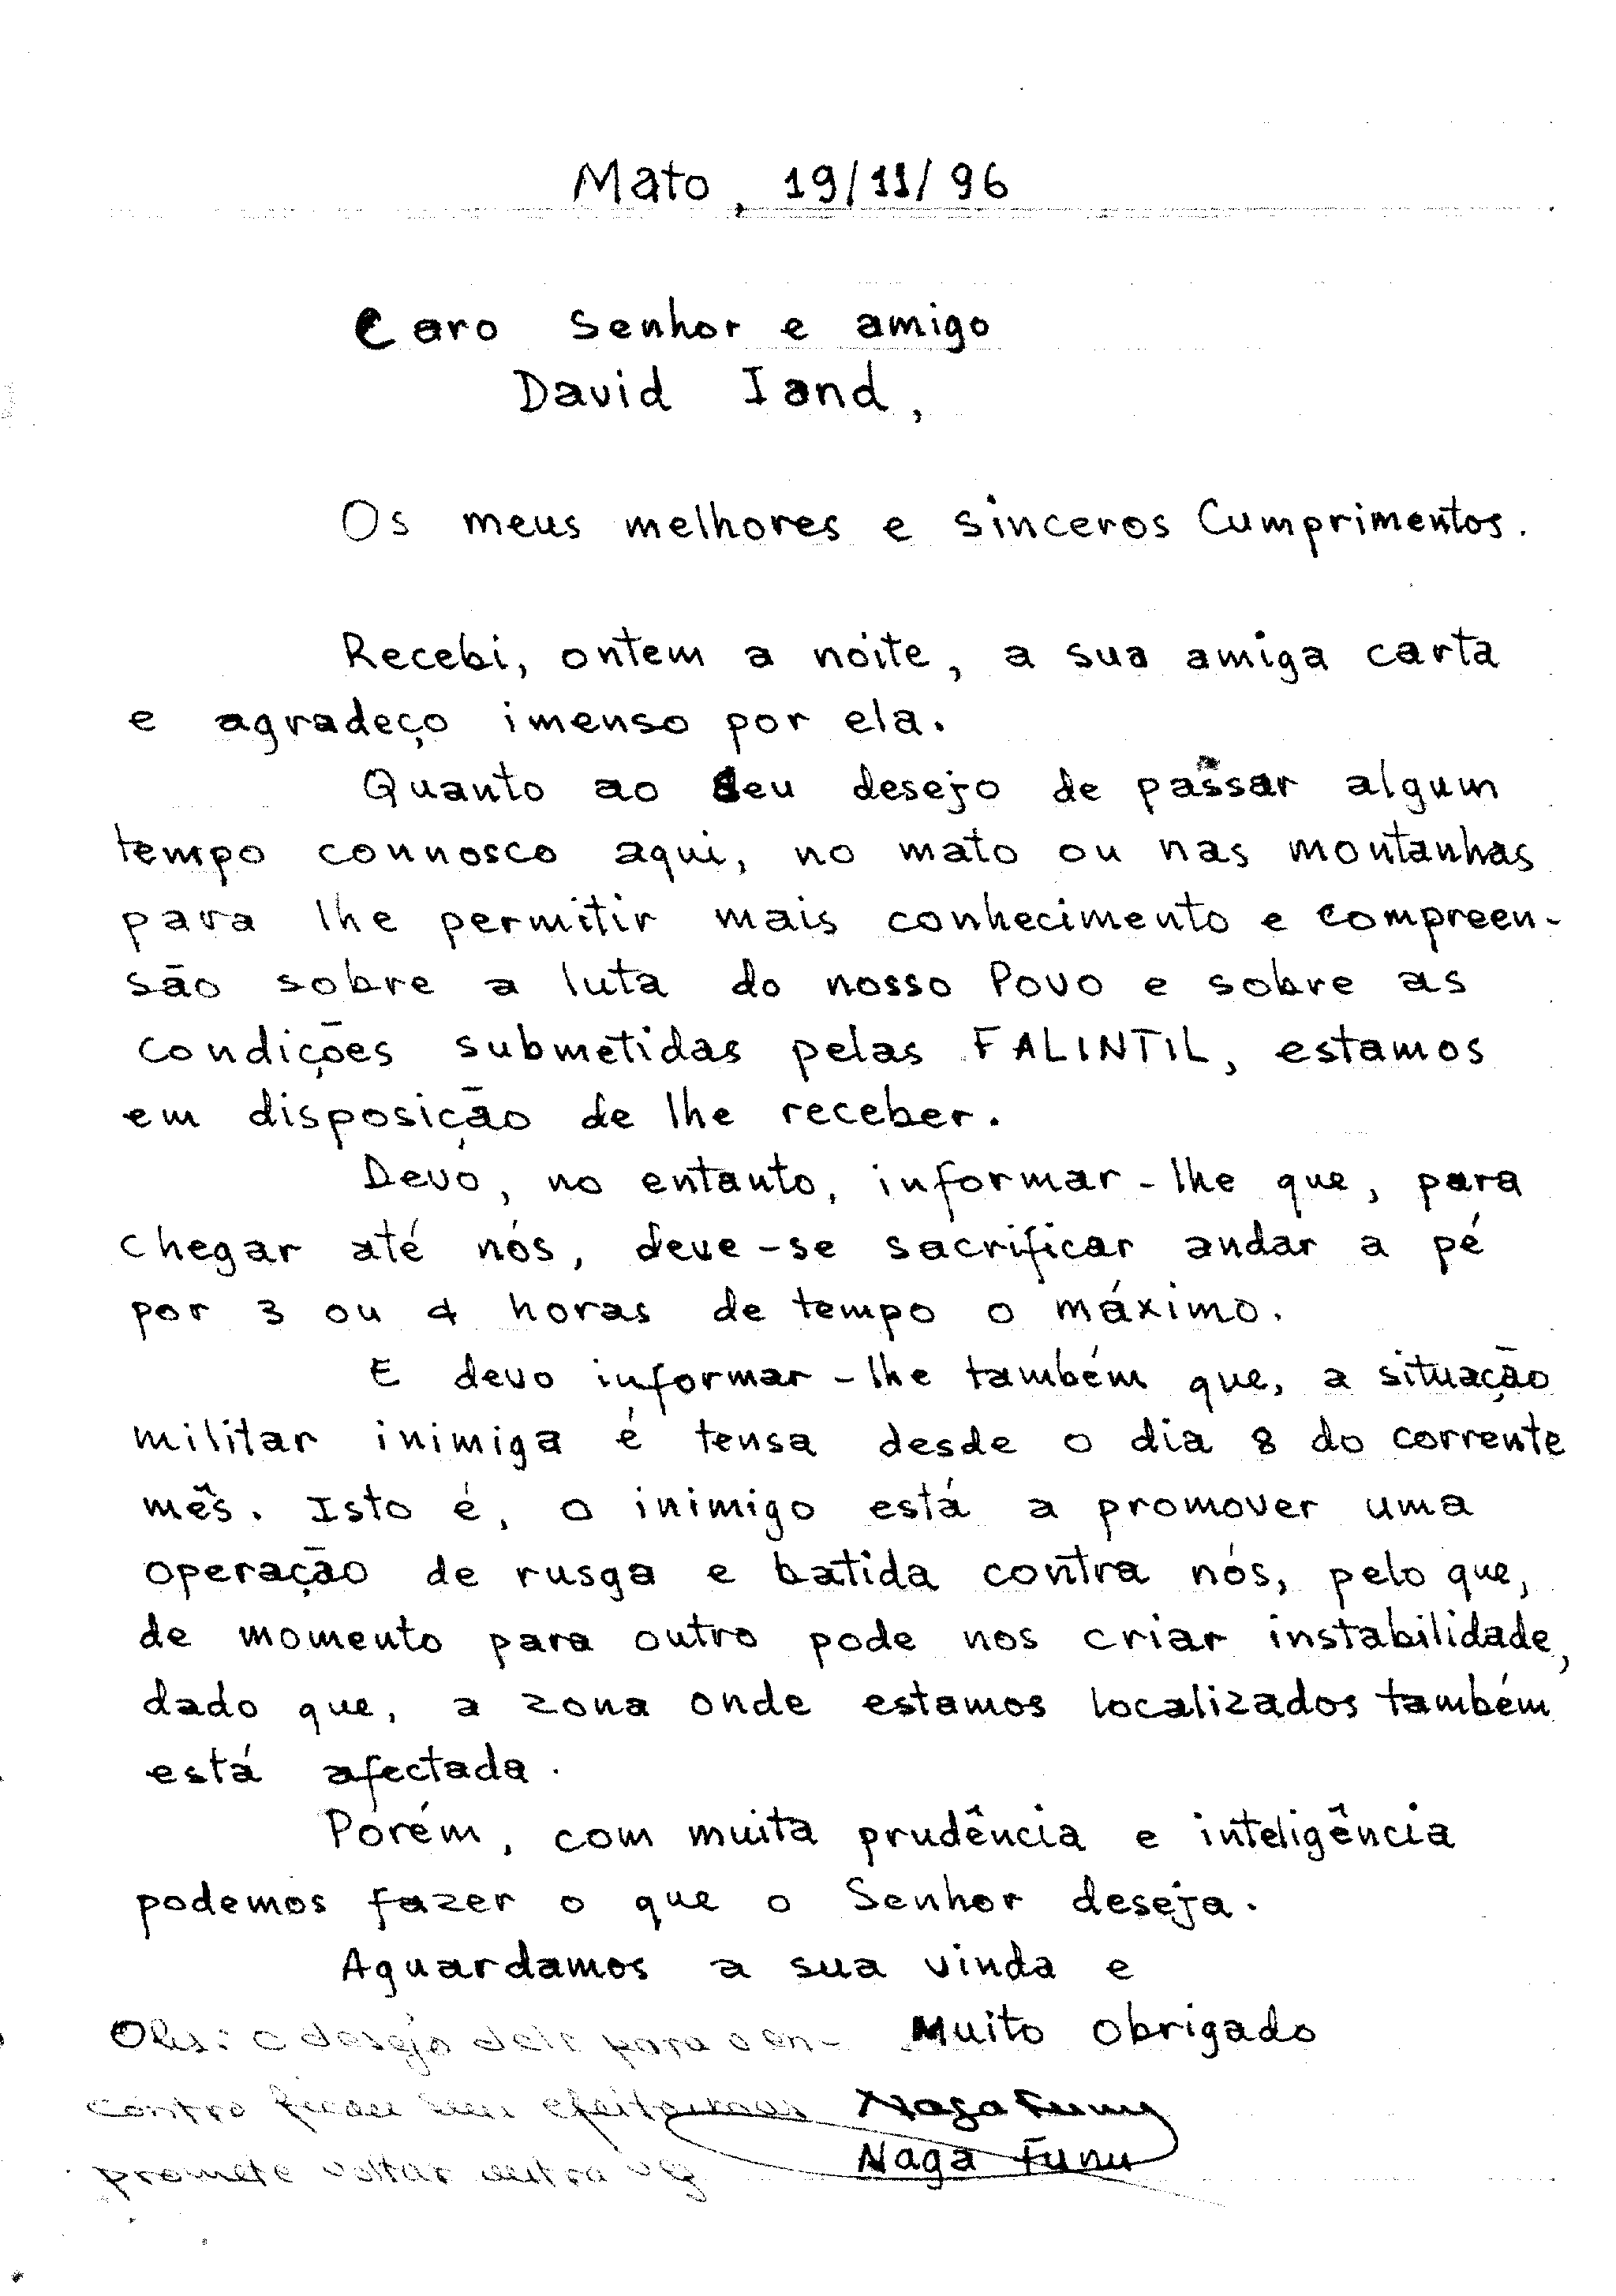 Mato, 19/11/96
Caro Senhor e amigo
David Iand,
Os meus melhores e sinceros Cumprimentos.
Recebi, ontem a noite, a sua amiga carta
e agradeço imenso por ela.
Quanto ao seu desejo de passar algum
tempo connosco aqui, no mato ou nas montanhas
para lhe permitir mais conhecimento e compreen-
são sobre a luta do nosso Povo e sobre as
condições submetidas pelas FALINTIL, estamos
em disposição de lhe receber.
Devo, no entanto, informar-lhe que, para
chegar até nós, deve-se sacrificar andar a pé
por 3 ou 4 horas de tempo o máximo.
E devo informar-lhe também que, a situação
militar inimiga é tensa desde o dia 8 do corrente
mês. Isto é, o inimigo está a promover uma
operação de rusga e batida contra nós, pelo que,
de momento para outro pode nos criar instabilidade,
dado que, a zona onde estamos localizados também
está afectada.
Porém, com muita prudência e inteligência
podemos fazer o que o Senhor deseja.
Aguardamos a sua vinda e
Muito obrigado
Naga Funu
Naga Funu
Obs: o desejo dele para o en-
contro ficou sem efeito
promete voltar outra vez